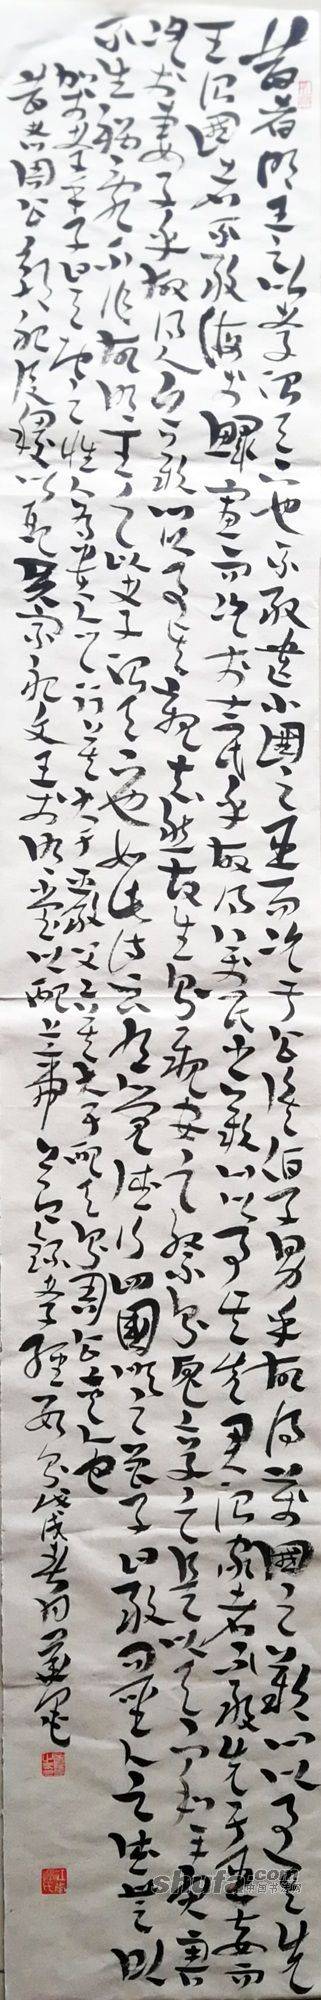 昔者明王之以孝治天下也不敢遺小國之臣而况于公侯伯子男乎故得萬國之歡心以事其先
王治國者不敢侮於鰥寡而况於士民乎故得百姓之歡心以事其先君治家者不敢失于臣妾而
况於妻子乎故得人之歡心以事其親夫然故生則親安之祭則鬼享之是以天下和平災害
不生禍亂不作故明王之以孝治天下也如此詩云有覺德行四國順之曾子曰敢問聖人之德無以
加於孝乎子曰天地之性人為貴人之行莫大于嚴父莫大于配天則周公其人也
昔者周公郊祀后稷以配天宗祀文王於明堂以配上帝 錄孝經 戊戌春月
shufa.com
中国书法网